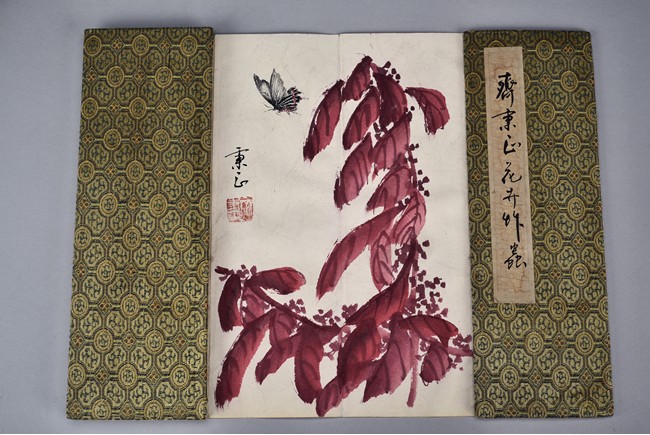 齊秉正花卉艸蟲
秉正